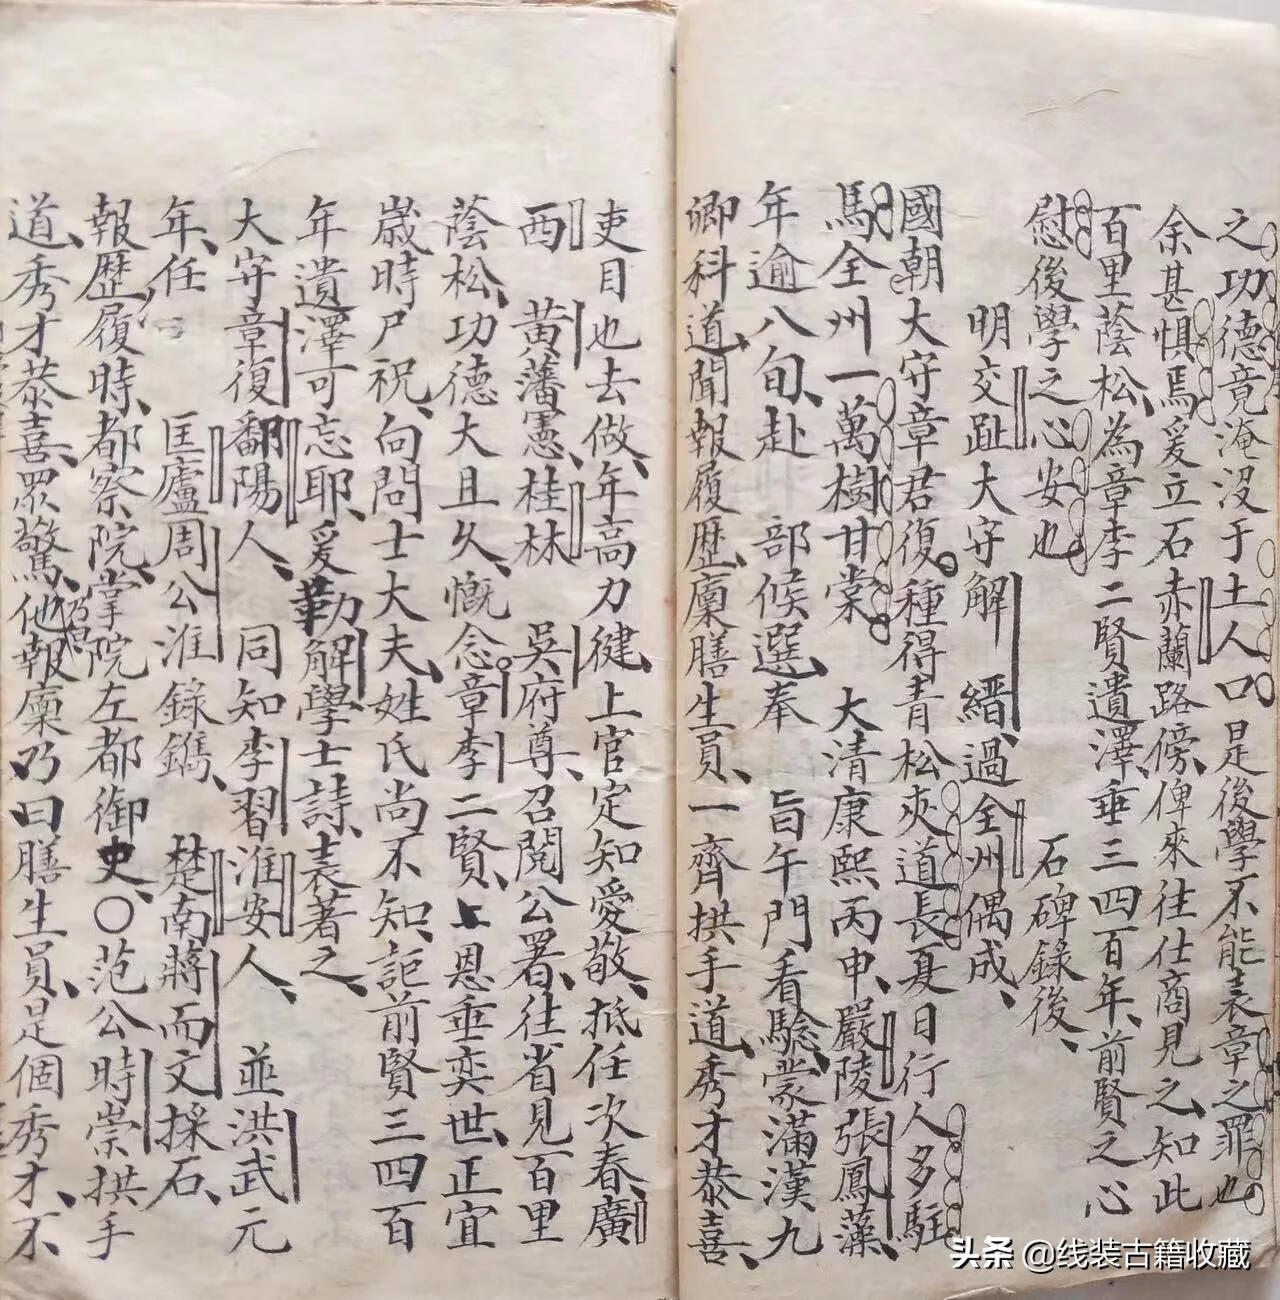 之功德竟淹沒于土人口是後學不能表章之罪也
余甚惧焉爰立石赤蘭路傍俾來往仕商見之知此
百里蔭松為章李二賢遺澤垂三四百年前賢之心
慰後學之心安也 石碑錄後
明交趾大守解縉過全州偶成
國朝大守章君復種得青松夾道長夏日行人多駐
馬全州一萬樹甘棠 大清康熙丙申嚴陵張鳳藻
年逾八旬赴 部候選奉 旨午門看驗蒙滿漢九
卿科道聞報履歷廩膳生員一齊拱手道秀才恭喜
吏目也去做年高力健上官定知愛敬抵任次春廣
西 黃藩憲桂林 吳府尊召閱公署往省見百里
蔭松功德大且久慨念章李二賢上恩垂奕世正宜
歲時尸祝向問士大夫姓氏尚不知詎前賢三四百
年遺澤可忘耶爰勒解學士詩表著之
大守章復鄱陽人 同知李習淮安人 並洪武元
年任 匡廬周公淮錄鐫 楚南蔣而文採石
報歷履時都察院掌院左都御史○范公時崇拱手
道秀才恭喜眾驚他報廩乃曰膳生員是個秀才不
头条 @线装古籍收藏